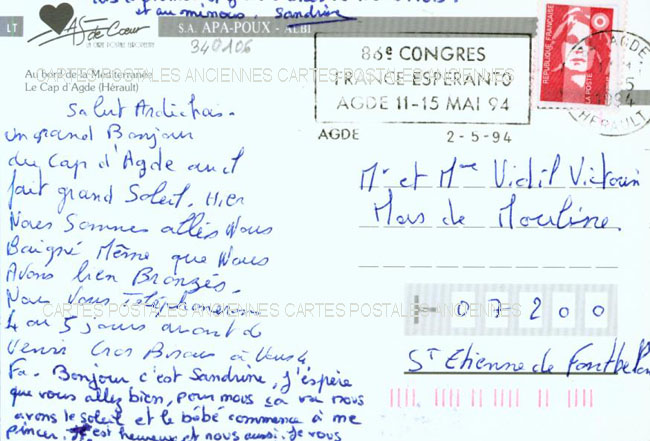 et au minous, Sandrine
LT
As de Cœur
LA CARTE POSTALE
S.A. APA-POUX - ALBI
340106
Au bord de la Méditerranée
Le Cap d'Agde (Hérault)
CARTES POSTALES ANCIENNES CARTES POSTALES ANCIENNES
86e CONGRES
FRANCE ESPERANTO
AGDE 11-15 MAI 94
AGDE 2-5-94
REPUBLIQUE FRANÇAISE
LA POSTE
AGDE
HERAULT
Salut
un grand Bonjour
du Cap d'Agde
fait grand Soleil. Hier
Nous Sommes allés Nous
Baigné Même que Nous
Avons bien Bronzés.
Nous Vous Téléphonerons
4 ou 5 jours avant de
Venir Gros Bisous à Vous 4
Bonjour c'est Sandrine, j'espère
que vous allez bien, pour nous ça va nous
avons le soleil et le bébé commence à me
pincer. est heureux et nous aussi. Je vous
Mr et Mme Vidil Victorin
Mas de Mouline
CARTES POSTALES ANCIENNES CARTES POSTALES ANCIENNES
07200
St Etienne de